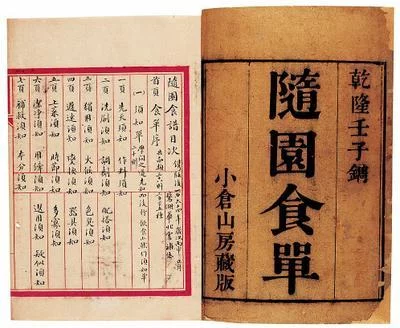 乾隆壬子鐫
隨園食單
小倉山房藏版
隨園食譜目次
首頁 食單序
一 須知單
一頁 先天須知 作料須知
二頁 洗刷須知 調劑須知 配搭須知
三頁 獨用須知 火候須知 色臭須知
四頁 遲速須知 變換須知 器具須知
五頁 上菜須知 時節須知 多寡須知
六頁 潔淨須知 用縴須知 選用須知 疑似須知
七頁 補救須知 本分須知